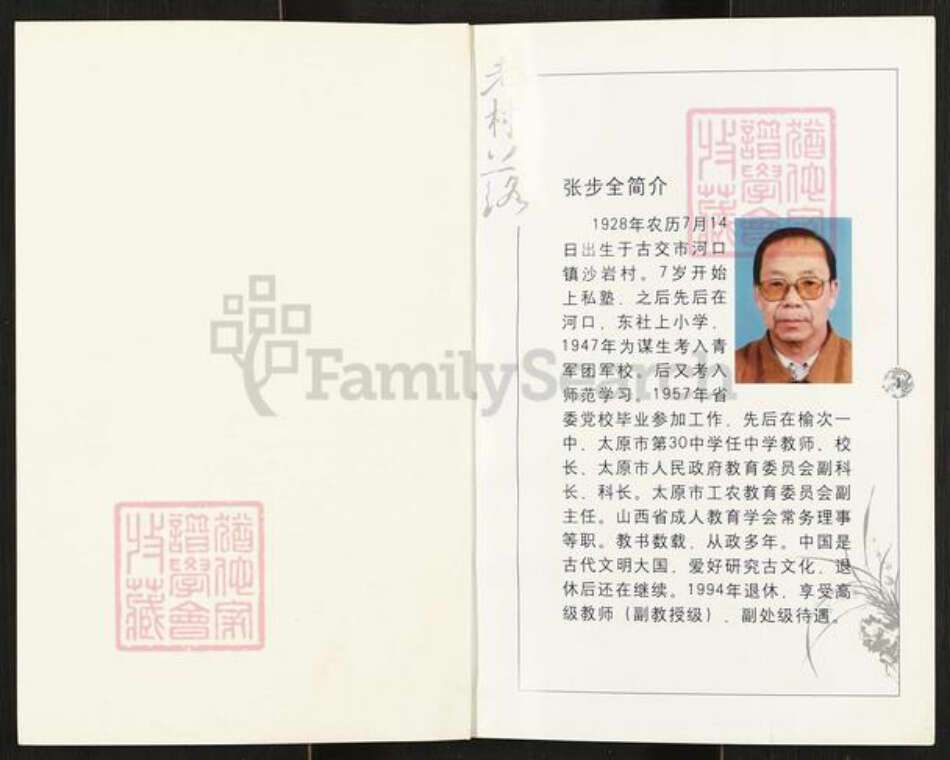 张步全简介
1928年农历7月14
日出生于古交市河口
镇沙岩村。7岁开始
上私塾、之后先后在
河口、东社上小学、
1947年为谋生考入青
军团军校、后又考入
师范学习。1957年省
委党校毕业参加工作、先后在榆次一
中、太原市第30中学任中学教师、校
长、太原市人民政府教育委员会副科
长、科长。太原市工农教育委员会副
主任。山西省成人教育学会常务理事
等职。教书数载、从政多年。中国是
古代文明大国、爱好研究古文化、退
休后还在继续。1994年退休、享受高
级教师（副教授级）、副处级待遇。
FamilySearch
猶他家
譜學會
收藏
猶他家
譜學會
收藏